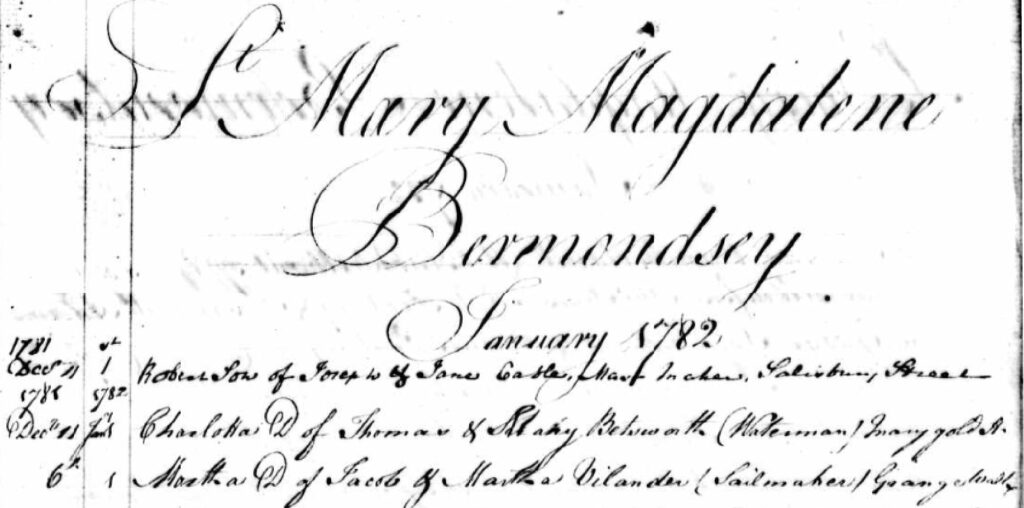 St Mary Magdalene
Bermondsey
January 1782
1781 st
Decr 21 1 Robert Son of Joseph & Jane Salisbury Street
1781 1782
Decr Jany 1 Charlotta D of Thomas & Betsworth (Waterman) Marygold
6th 1 Martha D of Jacob & Martha Vilander (Sailmaker) Grange